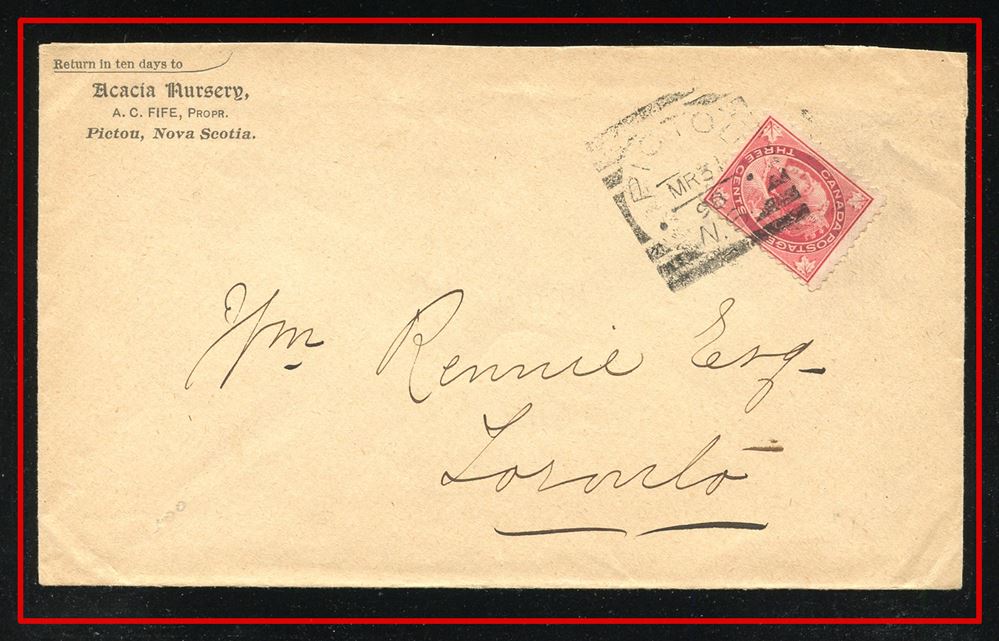 Return in ten days to
Acacia Nursery,
A. C. FIFE, PROPR.
Pictou, Nova Scotia.
PICTOU
MR 31
98
N.S.
CANADA POSTAGE
THREE CENTS
Wm Rennie Esq
Toronto